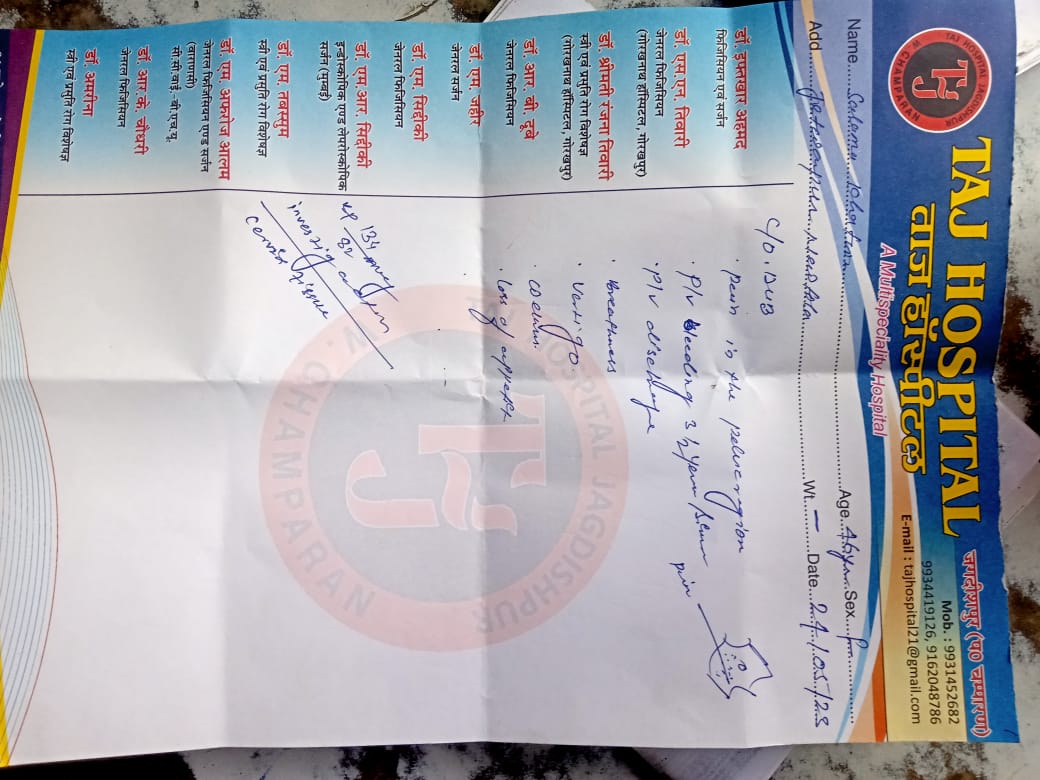 TAJ HOSPITAL
ताज हॉस्पीटल
जगदीशपुर (प० चम्पारण)
A Multispeciality Hospital
Mob. : 9931452682
9934419126, 9162048786
E-mail : tajhospital21@gmail.com
TAJ HOSPITAL JAGDISHPUR
W. CHAMPARAN
Name Age 46 yrs Sex
Add Wt. – Date 24/05/23
डॉ. इफ्तखार अहमद
फिजिसियन एवं सर्जन
डॉ. एस.एन. तिवारी
जेनरल फिजिसियन
(गोरखनाथ हॉस्पिटल, गोरखपुर)
डॉ. श्रीमती रंजना तिवारी
स्त्री एवं प्रसुति रोग विशेषज्ञ
(गोरखनाथ हॉस्पिटल, गोरखपुर)
डॉ. आर. बी. दूबे
जेनरल फिजिसियन
डॉ. एम. जहीर
जेनरल सर्जन
डॉ. एम. सिद्दीकी
जेनरल फिजिसियन
डॉ. एम.आर. सिद्दीकी
इन्डोस्कोपिक एण्ड लेप्रोस्कोपिक
सर्जन (मुम्बई)
डॉ. एम. तबस्सुम
स्त्री एवं प्रसुति रोग विशेषज्ञ
डॉ. एम. अफरोज आलम
जेनरल फिजिसियन एण्ड सर्जन
(वाराणसी)
सी.सी.वाई. बी.एच.यू.
डॉ. आर. के. चौधरी
जेनरल फिजिसियन
डॉ. अमरीना
स्त्री एवं प्रसुति रोग विशेषज्ञ
C/O, DUB
· pain in the pelvic region
· P/v bleeding 3 1/2 year
· P/v discharge
· vertigo
· loss of
W. CHAMPARAN
HOSPITAL JAGDISHPUR